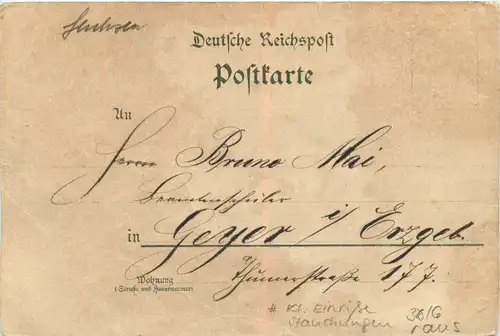 Sachsen
Deutsche Reichspost
Postkarte
An
Herrn Bruno Mai,
Beamtenschüler
in Geyer i/ Erzgeb.
Wohnung
(Straße und Hausnummer)
Thumerstraße 177.
# Kl. Einriße
Stauchungen
raus